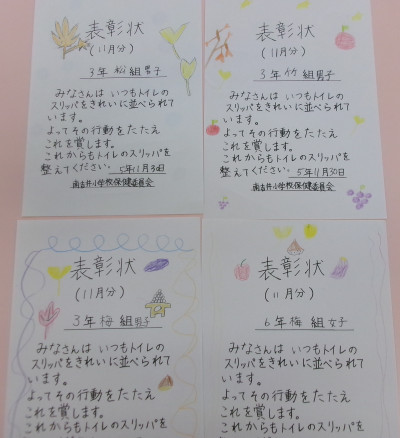 表彰状
(11月分)
3年 松 組 男子
みなさんは いつもトイレの
スリッパをきれいに並べられて
います。
よってその行動をたたえ
これを賞します。
これからもトイレのスリッパを
整えてください。5年11月30日
南吉井小学校保健委員会
表彰状
(11月分)
3年 竹 組 男子
みなさんは いつもトイレの
スリッパをきれいに並べられて
います。
よってその行動をたたえ
これを賞します。
これからもトイレのスリッパを
整えてください。5年11月30日
南吉井小学校保健委員会
表彰状
(11月分)
3年 梅 組 男子
みなさんは いつもトイレの
スリッパをきれいに並べられて
います。
よってその行動をたたえ
これを賞します。
これからもトイレのスリッパを
表彰状
(11月分)
6年 梅 組 女子
みなさんは いつもトイレの
スリッパをきれいに並べられて
います。
よってその行動をたたえ
これを賞します。
これからもトイレのスリッパを